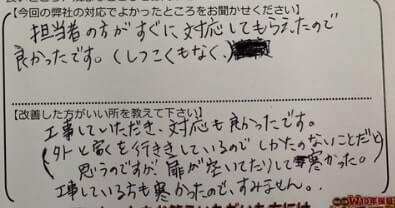 【今回の弊社の対応でよかったところをお聞かせください】
担当者の方がすぐに対応してもらえたので
良かったです。(しつこくもなく、)
【改善した方がいい所を教えて下さい】
工事していただき、対応も良かったです。
(外と家を行ききしているのでしかたのないことだと
思うのですが扉が空いてたりして寒かった。)
工事している方も寒かったので、すみません。。
W10年保証